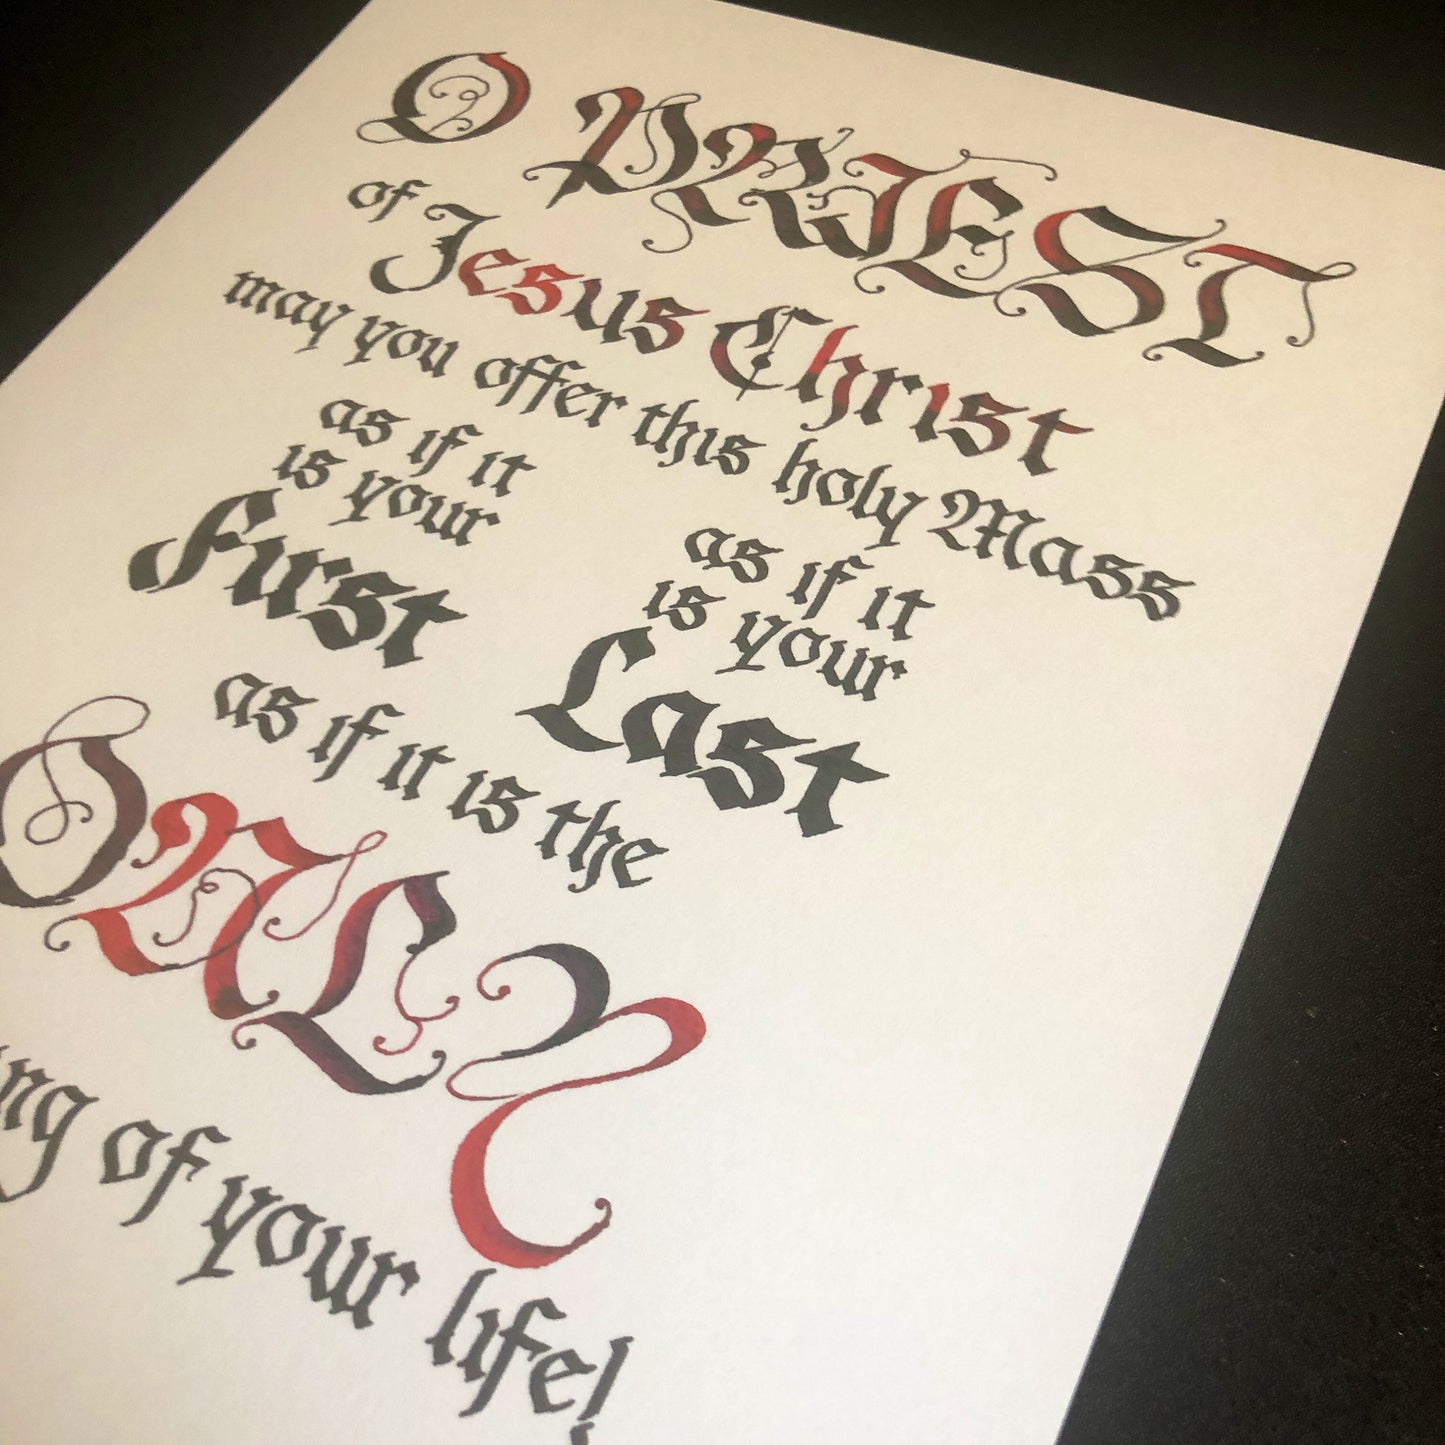 O PRIEST
of Jesus Christ
may you offer this holy Mass
as if it
is your
First
as if it
is your
Last
as if it is the
ONLY
of your life!